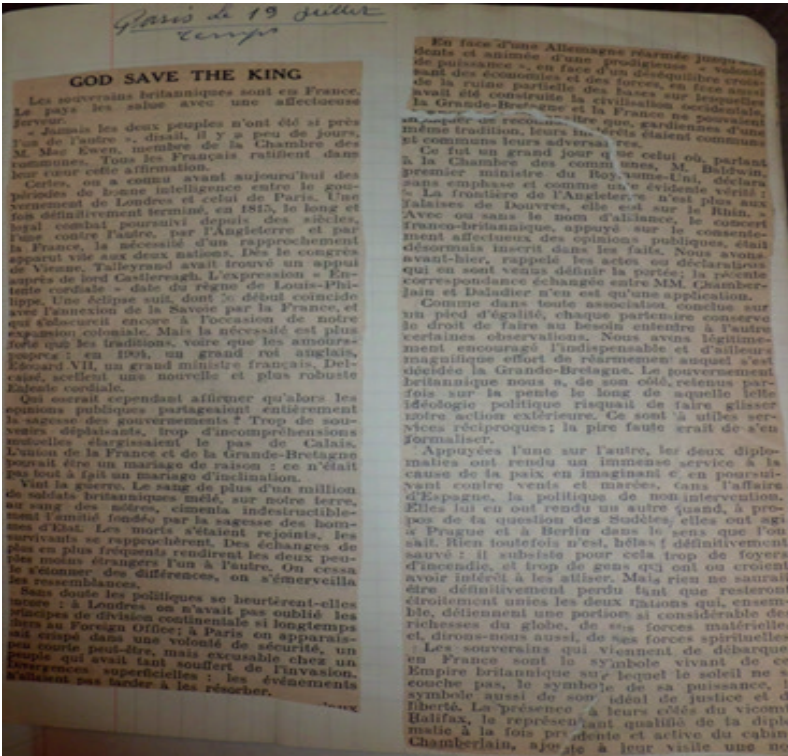 Paris le 19 juillet
temps
GOD SAVE THE KING
Les souverains britanniques sont en France.
Le pays les salue avec une affectueuse
ferveur.
« Jamais les deux peuples n'ont été si près
l'un de l'autre », disait, il y a peu de jours,
M. Mac Ewen, membre de la Chambre des
communes. Tous les Français ratifient dans
leur cœur cette affirmation.
Certes, on a connu avant aujourd'hui des
périodes de bonne intelligence entre le gou-
vernement de Londres et celui de Paris. Une
fois définitivement terminé, en 1815, le long et
loyal combat poursuivi depuis des siècles,
l'une contre l'autre, par l'Angleterre et par
la France, la nécessité d'un rapprochement
apparut vite aux deux nations. Dès le congrès
de Vienne, Talleyrand avait trouvé un appui
auprès de lord Castlereagh. L'expression « En-
tente cordiale » date du règne de Louis-Phi-
lippe. Une éclipse suit, dont le début coïncide
avec l'annexion de la Savoie par la France, et
qui s'obscurcit encore à l'occasion de notre
expansion coloniale. Mais la nécessité est plus
forte que les traditions, voire que les amours-
propres : en 1904, un grand roi anglais,
Edouard VII, un grand ministre français, Del-
cassé, scellent une nouvelle et plus robuste
Entente cordiale.
Qui aurait cependant affirmer qu'alors les
opinions publiques partageaient entièrement
la sagesse des gouvernements ? Trop de sou-
venirs déplaisants, trop d'incompréhensions
mutuelles élargissaient le pas de Calais.
L'union de la France et de la Grande-Bretagne
pouvait être un mariage de raison : ce n'était
pas tout à fait un mariage d'inclination.
Vint la guerre. Le sang de plus d'un million
de soldats britanniques mêlé, sur notre terre,
au sang des nôtres, cimenta indestructible-
ment l'amitié fondée par la sagesse des hom-
mes d'Etat. Les morts s'étaient rejoints, les
survivants se rapprochèrent. Des échanges de
plus en plus fréquents rendirent les deux peu-
ples moins étrangers l'un à l'autre. On cessa
de s'étonner des différences, on s'émerveilla
des ressemblances.
Sans doute les politiques se heurtèrent-elles
encore : à Londres on n'avait pas oublié les
principes de division continentale si longtemps
chers au Foreign Office ; à Paris on apparais-
sait crispé dans une volonté de sécurité, un
peu courte peut-être, mais excusable chez un
peuple qui avait tant souffert de l'invasion.
Divergences superficielles : les événements
n'allaient pas tarder à les résorber.
En face d'une Allemagne réarmée jusqu'aux
dents et animée d'une prodigieuse « volonté
de puissance », en face d'un déséquilibre crois-
sant des économies et des forces, en face aussi
de la ruine partielle des bases sur lesquelles
avait été construite la civilisation occidentale,
la Grande-Bretagne et la France ne pouvaient
manquer de reconnaître que, gardiennes d'une
même tradition, leurs intérêts étaient communs
et communs leurs adversaires.
Ce fut un grand jour que celui où, parlant
à la Chambre des communes, M. Baldwin,
premier ministre du Royaume-Uni, déclara
sans emphase et comme une évidente vérité :
« La frontière de l'Angleterre n'est plus aux
falaises de Douvres, elle est sur le Rhin. »
Avec ou sans le nom d'alliance, le concert
franco-britannique, appuyé sur le consente-
ment affectueux des opinions publiques, était
désormais inscrit dans les faits. Nous avons,
avant-hier, rappelé les actes et déclarations
qui en sont venus définir la portée ; la récente
correspondance échangée entre MM. Chamber-
lain et Daladier n'en est qu'une application.
Comme dans toute association conclue sur
un pied d'égalité, chaque partenaire conserve
le droit de faire au besoin entendre à l'autre
certaines observations. Nous avons légitime-
ment encouragé l'indispensable et d'ailleurs
magnifique effort de réarmement auquel s'est
décidée la Grande-Bretagne. Le gouvernement
britannique nous a, de son côté, retenus par-
fois sur la pente le long de laquelle telle
idéologie politique risquait de faire glisser
notre action extérieure. Ce sont là utiles ser-
vices réciproques ; la pire faute serait de s'en
formaliser.
Appuyées l'une sur l'autre, les deux diplo-
maties ont rendu un immense service à la
cause de la paix en imaginant et en poursui-
vant contre vents et marées, dans l'affaire
d'Espagne, la politique de non intervention.
Elles lui en ont rendu un autre quand, à pro-
pos de la question des Sudètes, elles ont agi
à Prague et à Berlin dans le sens que l'on
sait. Rien toutefois n'est, hélas ! définitivement
sauvé : il subsiste pour cela trop de foyers
d'incendie, et trop de gens qui ont ou croient
avoir intérêt à les attiser. Mais rien ne saurait
être définitivement perdu tant que resteront
étroitement unies les deux nations qui, ensem-
ble, détiennent une portion si considérable des
richesses du globe, de ses forces matérielles
et, dirons-nous aussi, de ses forces spirituelles.
Les souverains qui viennent de débarquer
en France sont le symbole vivant de cet
Empire britannique sur lequel le soleil ne se
couche pas, le symbole de sa puissance, le
symbole aussi de son idéal de justice et de
liberté. La présence à leurs côtés du vicomte
Halifax, le représentant qualifié de la diplo-
matie à la fois prudente et active du cabinet
Chamberlain, ajoute à leur visite une